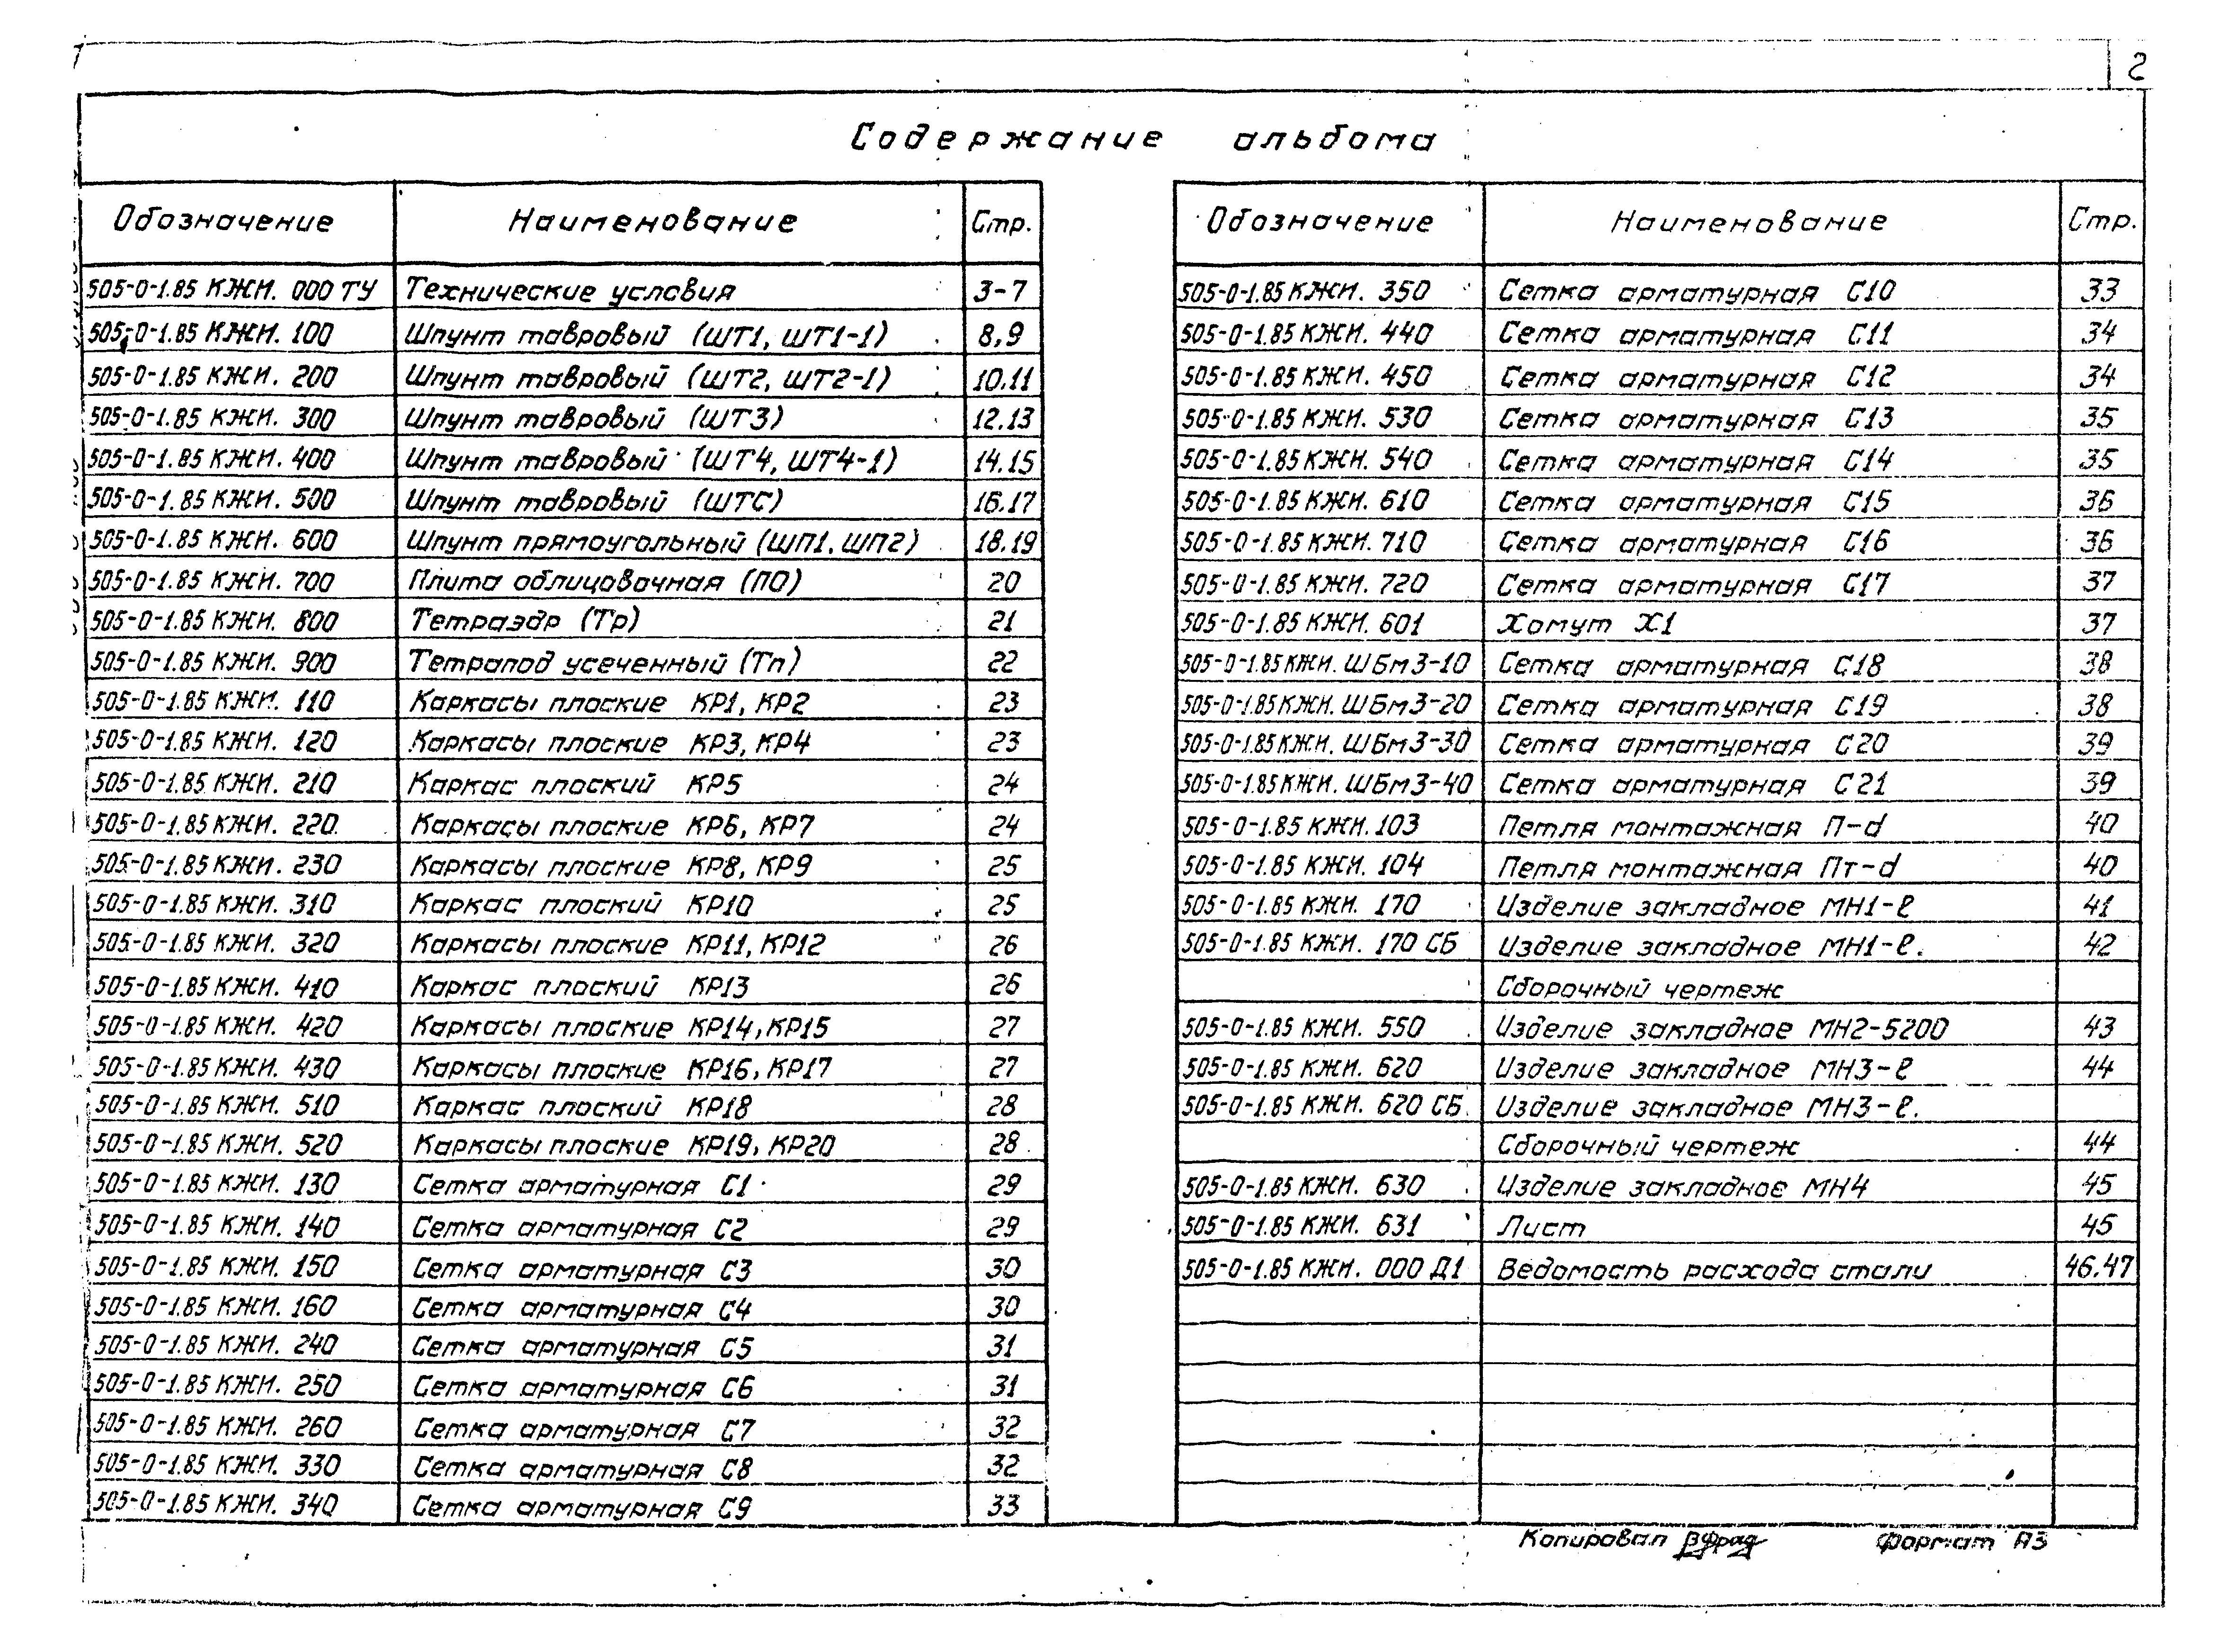 2
Содержание альбома
Обозначение Наименование Стр.
505-0-1.85 КЖИ. 000 ТУ Технические условия 3-7
505-0-1.85 КЖИ. 100 Шпунт тавровый (ШТ1, ШТ1-1) 8,9
505-0-1.85 КЖИ. 200 Шпунт тавровый (ШТ2, ШТ2-1) 10.11
505-0-1.85 КЖИ. 300 Шпунт тавровый (ШТ3) 12.13
505-0-1.85 КЖИ. 400 Шпунт тавровый (ШТ4, ШТ4-1) 14.15
505-0-1.85 КЖИ. 500 Шпунт тавровый (ШТС) 16.17
505-0-1.85 КЖИ. 600 Шпунт прямоугольный (ШП1, ШП2) 18.19
505-0-1.85 КЖИ. 700 Плита облицовачная (ПО) 20
505-0-1.85 КЖИ. 800 Тетраэдр (Тр) 21
505-0-1.85 КЖИ. 900 Тетрапод усеченный (Тп) 22
505-0-1.85 КЖИ. 110 Каркасы плоские КР1, КР2 23
505-0-1.85 КЖИ. 120 Каркасы плоские КР3, КР4 23
505-0-1.85 КЖИ. 210 Каркас плоский КР5 24
505-0-1.85 КЖИ. 220 Каркасы плоские КР6, КР7 24
505-0-1.85 КЖИ. 230 Каркасы плоские КР8, КР9 25
505-0-1.85 КЖИ. 310 Каркас плоский КР10 25
505-0-1.85 КЖИ. 320 Каркасы плоские КР11, КР12 26
505-0-1.85 КЖИ. 410 Каркас плоский КР13 26
505-0-1.85 КЖИ. 420 Каркасы плоские КР14, КР15 27
505-0-1.85 КЖИ. 430 Каркасы плоские КР16, КР17 27
505-0-1.85 КЖИ. 510 Каркас плоский КР18 28
505-0-1.85 КЖИ. 520 Каркасы плоские КР19, КР20 28
505-0-1.85 КЖИ. 130 Сетка арматурная С1 29
505-0-1.85 КЖИ. 140 Сетка арматурная С2 29
505-0-1.85 КЖИ. 150 Сетка арматурная С3 30
505-0-1.85 КЖИ. 160 Сетка арматурная С4 30
505-0-1.85 КЖИ. 240 Сетка арматурная С5 31
505-0-1.85 КЖИ. 250 Сетка арматурная С6 31
505-0-1.85 КЖИ. 260 Сетка арматурная С7 32
505-0-1.85 КЖИ. 330 Сетка арматурная С8 32
505-0-1.85 КЖИ. 340 Сетка арматурная С9 33
Обозначение Наименование Стр.
505-0-1.85 КЖИ. 350 Сетка арматурная С10 33
505-0-1.85 КЖИ. 440 Сетка арматурная С11 34
505-0-1.85 КЖИ. 450 Сетка арматурная С12 34
505-0-1.85 КЖИ. 530 Сетка арматурная С13 35
505-0-1.85 КЖИ. 540 Сетка арматурная С14 35
505-0-1.85 КЖИ. 610 Сетка арматурная С15 36
505-0-1.85 КЖИ. 710 Сетка арматурная С16 36
505-0-1.85 КЖИ. 720 Сетка арматурная С17 37
505-0-1.85 КЖИ. 601 Хомут Х1 37
505-0-1.85 КЖИ. ШБм3-10 Сетка арматурная С18 38
505-0-1.85 КЖИ. ШБм3-20 Сетка арматурная С19 38
505-0-1.85 КЖИ. ШБм3-30 Сетка арматурная С20 39
505-0-1.85 КЖИ. ШБм3-40 Сетка арматурная С21 39
505-0-1.85 КЖИ. 103 Петля монтажная П-d 40
505-0-1.85 КЖИ. 104 Петля монтажная Пт-d 40
505-0-1.85 КЖИ. 170 Изделие закладное МН1-ℓ 41
505-0-1.85 КЖИ. 170 СБ Изделие закладное МН1-ℓ. 42
Сборочный чертеж
505-0-1.85 КЖИ. 550 Изделие закладное МН2-5200 43
505-0-1.85 КЖИ. 620 Изделие закладное МН3-ℓ 44
505-0-1.85 КЖИ. 620 СБ Изделие закладное МН3-ℓ.
Сборочный чертеж 44
505-0-1.85 КЖИ. 630 Изделие закладное МН4 45
505-0-1.85 КЖИ. 631 Лист 45
505-0-1.85 КЖИ. 000 Д1 Ведомость расхода стали 46.47
Копировал Формат А3